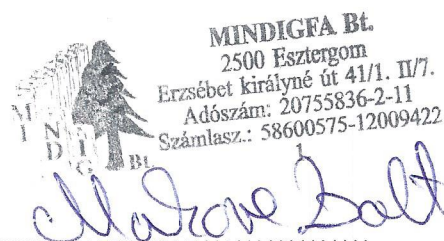 MINDIGFA Bt.
2500 Esztergom
Erzsébet királyné út 41/1. II/7.
Adószám: 20755836-2-11
Számlasz.: 58600575-12009422
1
MINDIG
Bt.